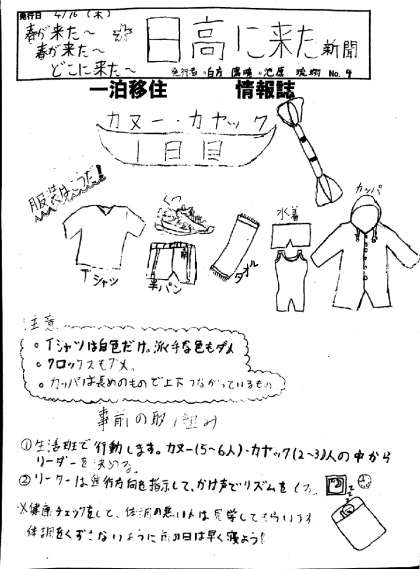 発行日 4/16 (木)
春が来た〜
春が来た〜
どこに来た〜
日高に来た新聞
発行者 No.4
一泊移住 情報誌
カヌー・カヤック
1日目
服装はこうだ!
くつ
水着
カッパ
Tシャツ
半パン
タオル
注意
Tシャツは白色だけ。派手な色もダメ
クロックスもダメ。
カッパは長めのもので上下つながっているもの
事前の取り組み
①生活班で行動します。カヌー(5~6人)・カヤック(2~3)人の中から
リーダーを決める。
②リーダーは進行方向を指示して、かけ声でリズムを
※健康チェックをして、体調の悪い人は見学してもらいます
体調をくずさないように前の日は早く寝よう!